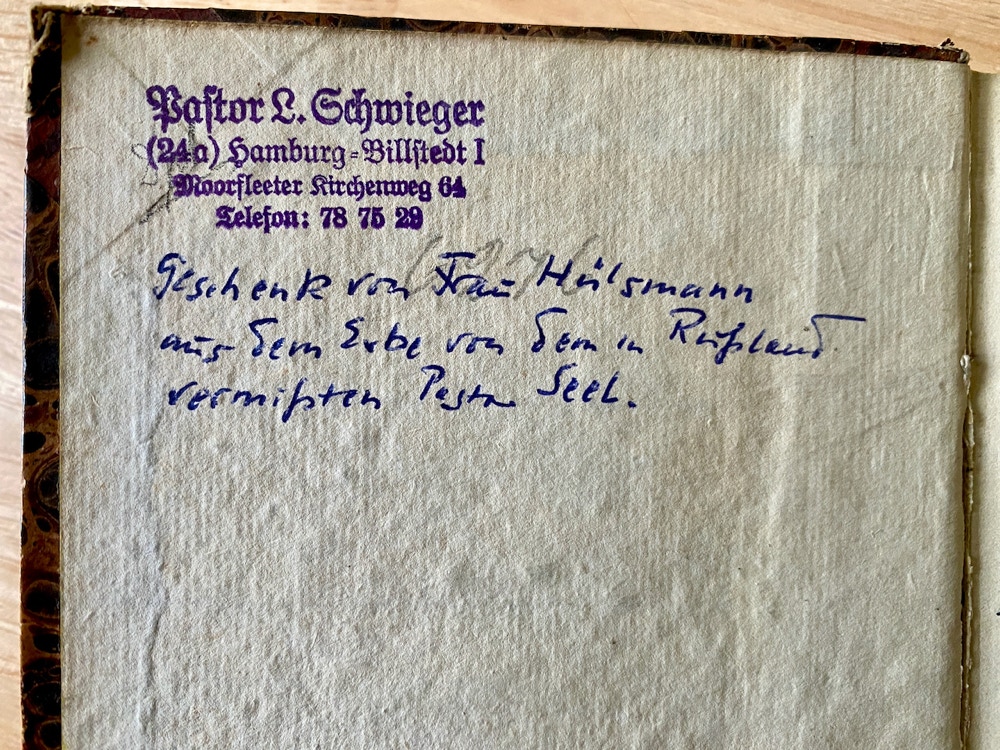 Pastor L. Schwieger
(24a) Hamburg-Billstedt I
Moorfleeter Kirchenweg 64
Telefon: 78 75 29
Geschenk von Frau Hülsmann
aus dem Erbe von dem in Rußland
vermißten Pastor Seel.